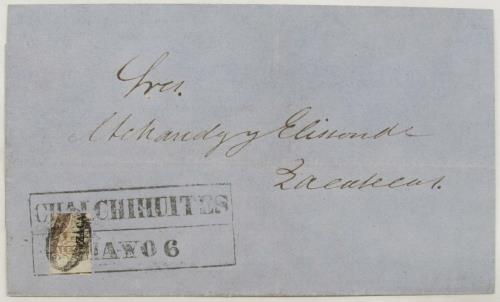 Sres.
Etchandy y Elisondo
Zacatecas.
CHALCHIHUITES
MAYO 6